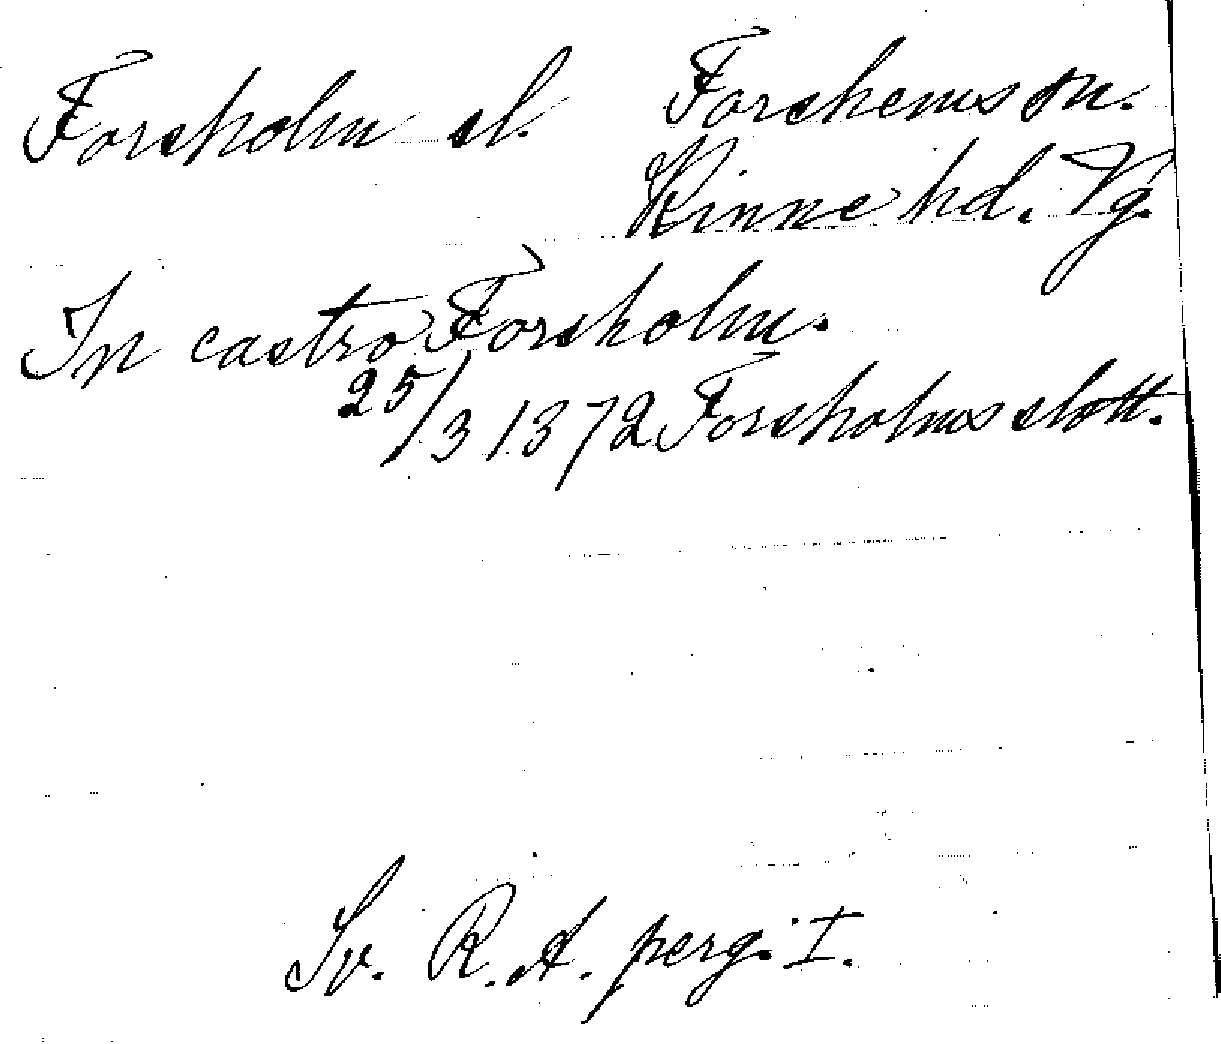 Forsholm sl. Forshems sn.
Kinne hd. Vg.
In castro Forsholm.
25/3 1372 Forsholms slott.
Sv. R. A. perg. I.